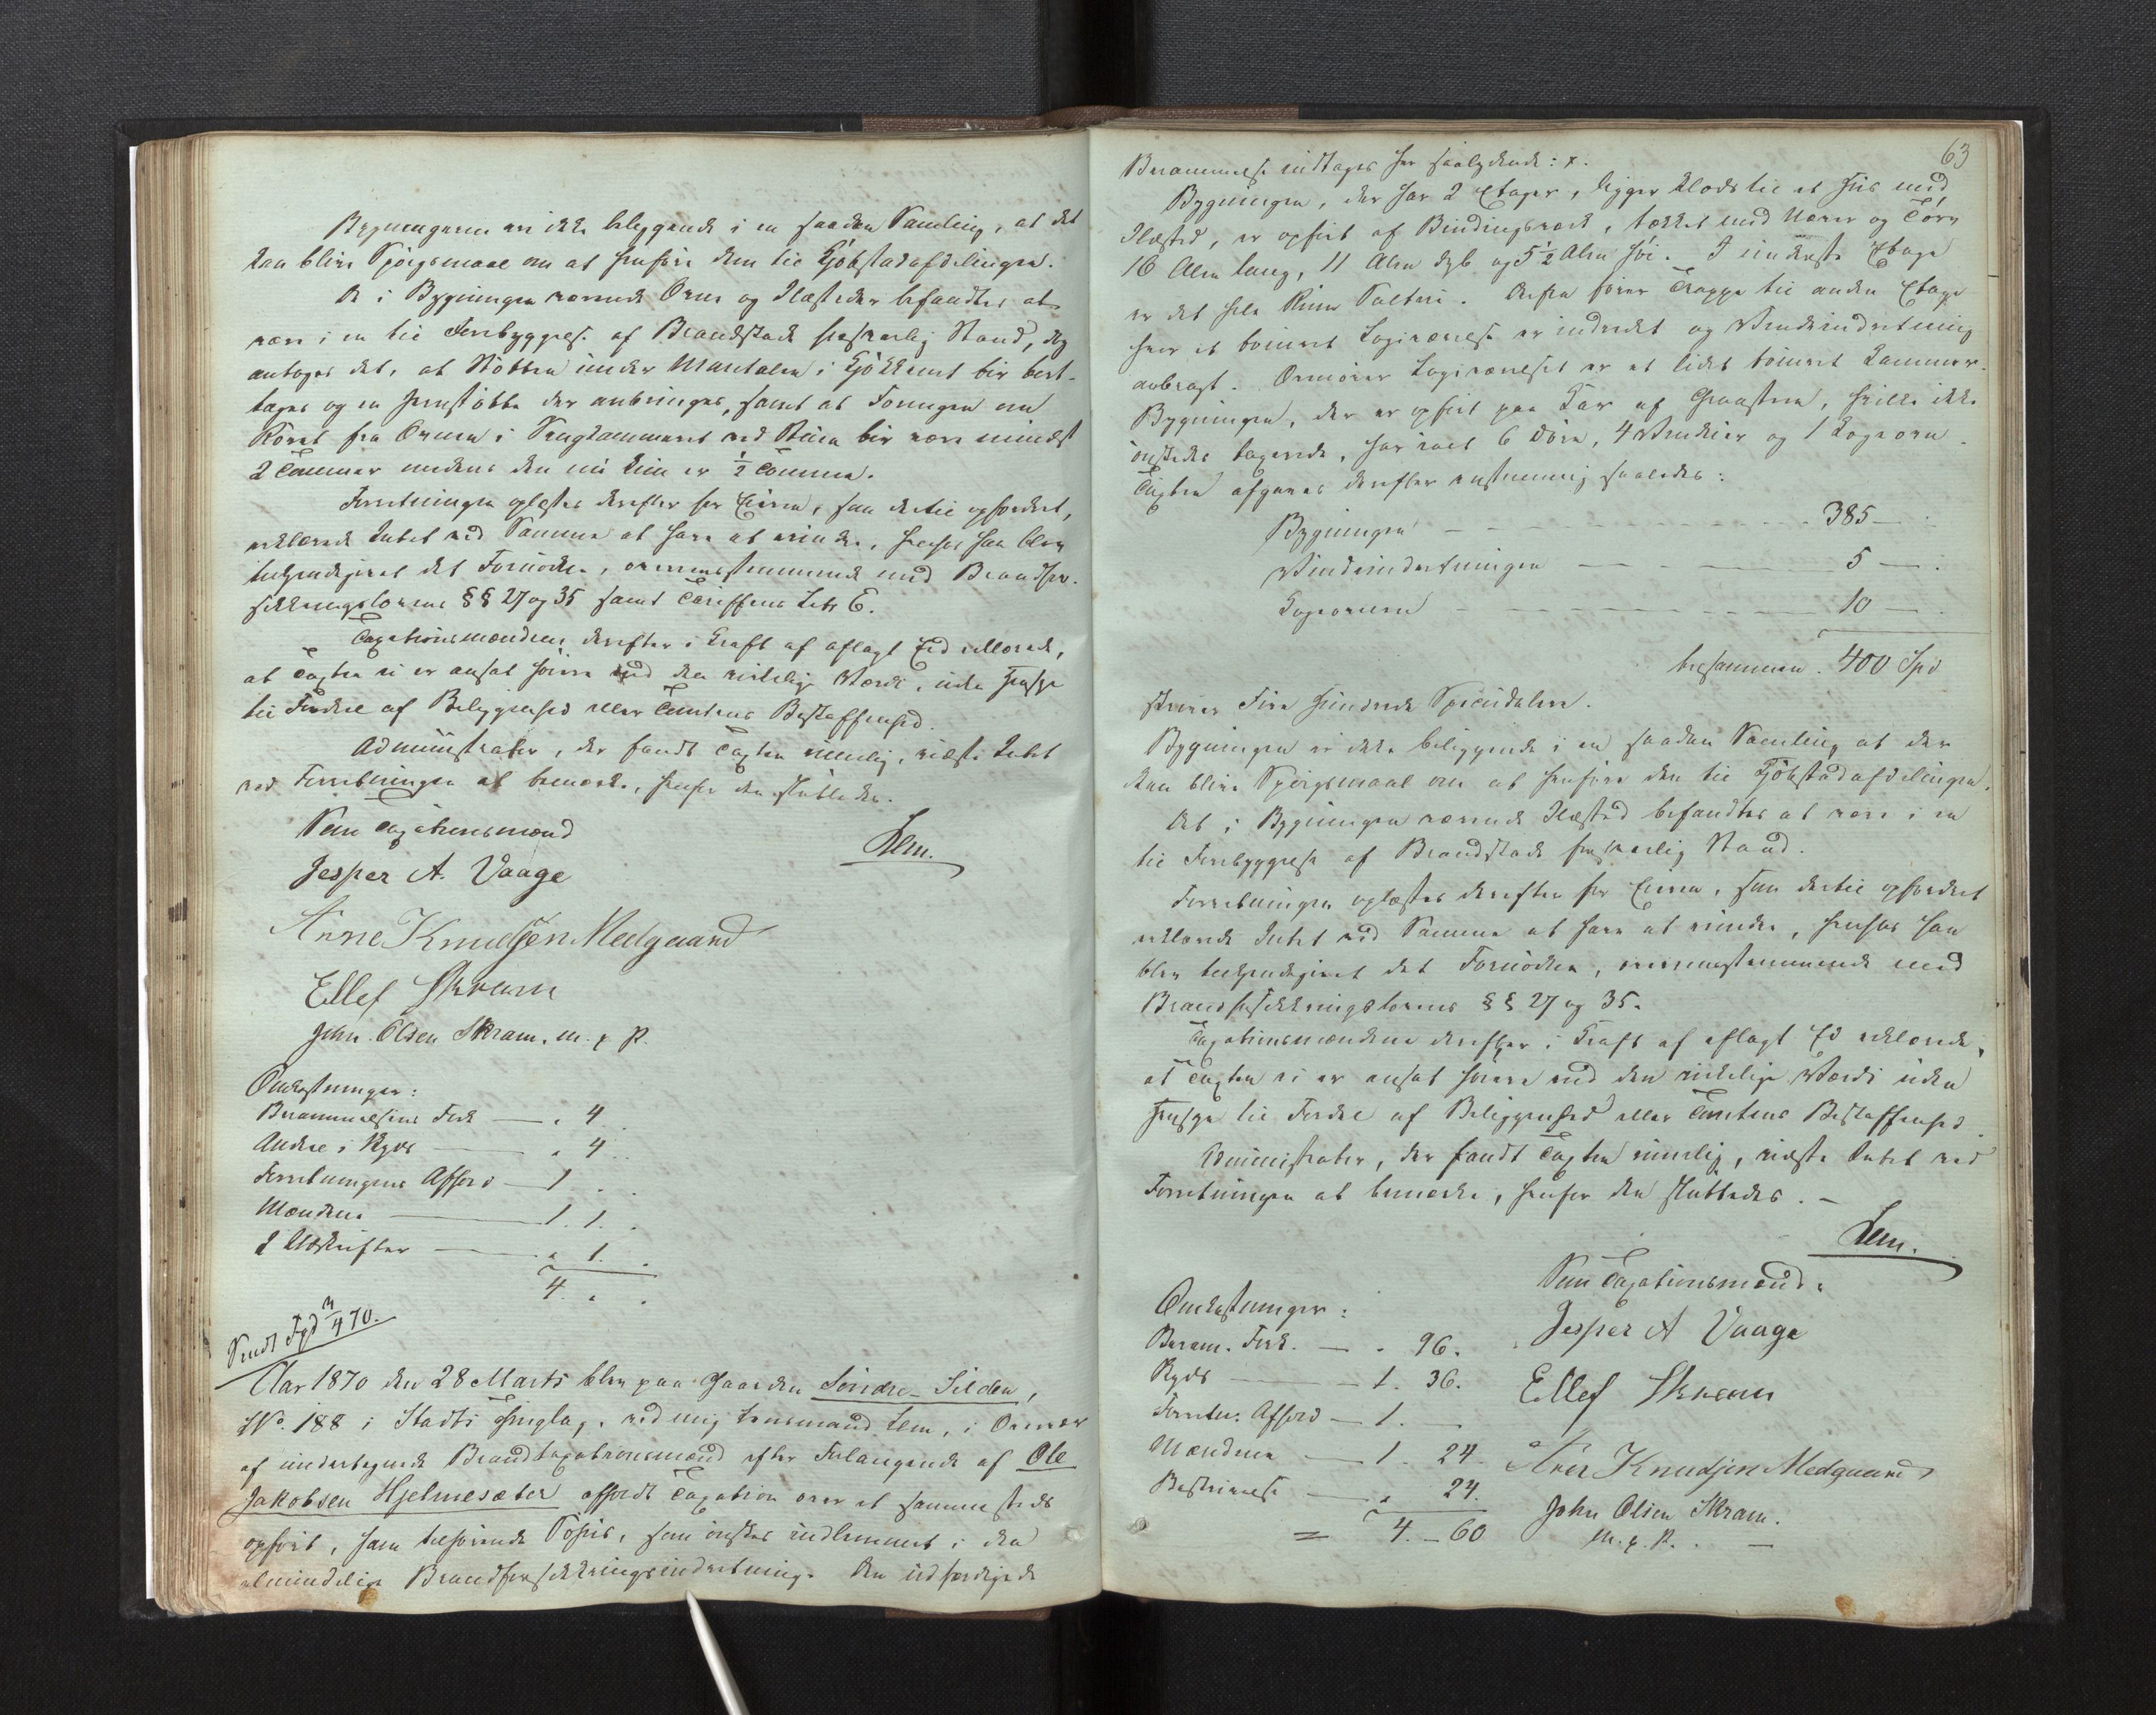 Bygningerne ere ikke beliggende i en saadan Samling, at det
kan blive Spörgsmaal om at henföre dem til Kjöbstadafdelingen.
De i Bygningen værende Ovne og Ildsteder befandtes at
være i en til Forebyggelse af Brandskade forsvarlig Stand, dog
antoges det, at Stötten under Mantelen i Kjökkenet bör bort-
tages og en Jernstötte der anbringes, samt at Foringen om
Röret fra Ovnen i Sengkammeret ved Stuen bör være mindst
2 Tommer medens den nu kun er ½ Tomme.
Forretningen oplæstes derefter for Eieren, som dertil opfordret,
erklærede Intet ved Samme at have at erindre, hvorhos han blev
tilkjendegivet det Fornödne, overensstemmende med Brandfor-
sikkringslovens §§ 27 og 35 samt Tariffens Litr E.
Taxationsmændene derefter i Kraft af aflagt Ed erklærede,
at Taxten ei er ansat höiere end den virkelige Værdi, uden Hensyn
til Fordel af Beliggenhed eller Tomtens Beskaffenhed.
Administrator, der fandt Taxten rimelig, vidste Intet
ved Forretningen at bemærke, hvorfor den sluttedes.
Lem.
Som Taxationsmænd
Jesper A. Vaage
Arne Knudsen Medgaard
Ellef Skram
John Olsen Skram. m. p. P.
Omkostninger:
Berammelsens Fork — " 4
Andel i Skyds — " 4 "
Forretningens Afhold — 1 " "
Mændene — 1. 1. "
2 Udskrifter — " 1. "
4 " "
Sendt Fgd 3/4 70.
Aar 1870 den 28 Marts blev paa Gaarden Söndre-Silden,
No. 188 i Stadts Thinglag, ved mig Lensmand Lem, i Overvær
af undertegnede Brandtaxationsmænd efter Forlangende af Ole
Jakobsen Hjelmesæter afholdt Taxation over et sammesteds
opfört, ham tilhörende Söhus, som önskes indlemmet i den
almindelige Brandforsikkringsindretning. Den udfærdigede
63
Berammelse indtages her saalydende: x.
Bygningen, der har 2 Etager, ligger klods til et Huus med
Ildsted, er opfört af Bindingsværk, tækket med Næver og Törv
16 Alen lang, 11 Alen dyb og 5½ Alen höi. I underste Etage
er det hele Rum Salteri. Derfra förer Trappe til anden Etage
hvor et tömret Logiværelse er indredet og Vindeindretning
anbragt. Ovenover Logiværelset er et lidet tömret Kammer.
Bygningen, der er opfört paa Kar af Graasten, hvilke ikke
önskedes taxerede, har ialt 6 Döre, 4 Vinduer og 1 Kogeovn.
Taxten afgaves derefter enstemmig saaledes:
Bygningen — 385 — "
Vindeindretningen — 5 — "
Kogeovnen — 10 — "
tilsammen. 400 Spd
skriver Fire Hundrede Speciedalere.
Bygningen er ikke beliggende i en saadan Samling at der
kan blive Spörgsmaal om at henföre den til Kjöbstadafdelingen.
Det i Bygningen værende Ildsted befandtes at være i en
til Forebyggelse af Brandskade forsvarlig Stand.
Forretningen oplæstes derefter for Eieren, som dertil opfordret
erklærede Intet ved Samme at have at erindre, hvorhos han
blev tilkjendegivet det Fornödne, overensstemmende med
Brandforsikkringslovens §§ 27 og 35.
Taxationsmændene derefter i Kraft af aflagt Ed erklærede,
at Taxten ei er ansat höiere end den virkelige Værdi uden
Hensyn til Fordel af Beliggenhed eller Tomtens Beskaffenhed.
Administrator, der fandt Taxten rimelig, vidste Intet ved
Forretningen at bemærke, hvorfor den sluttedes. —
Lem.
Som Taxationsmænd.
Jesper A Vaage
Ellef Skram
Arne Knudsen Medgaard
John Olsen Skram.
m. p. P. —
Omkostninger:
Beram. Fork. — " 96.
Skyds — 1. 36.
Forretn. Afhold — 1. "
Mændene — 1. 24.
Beskrivelse — " 24.
= 4. – 60